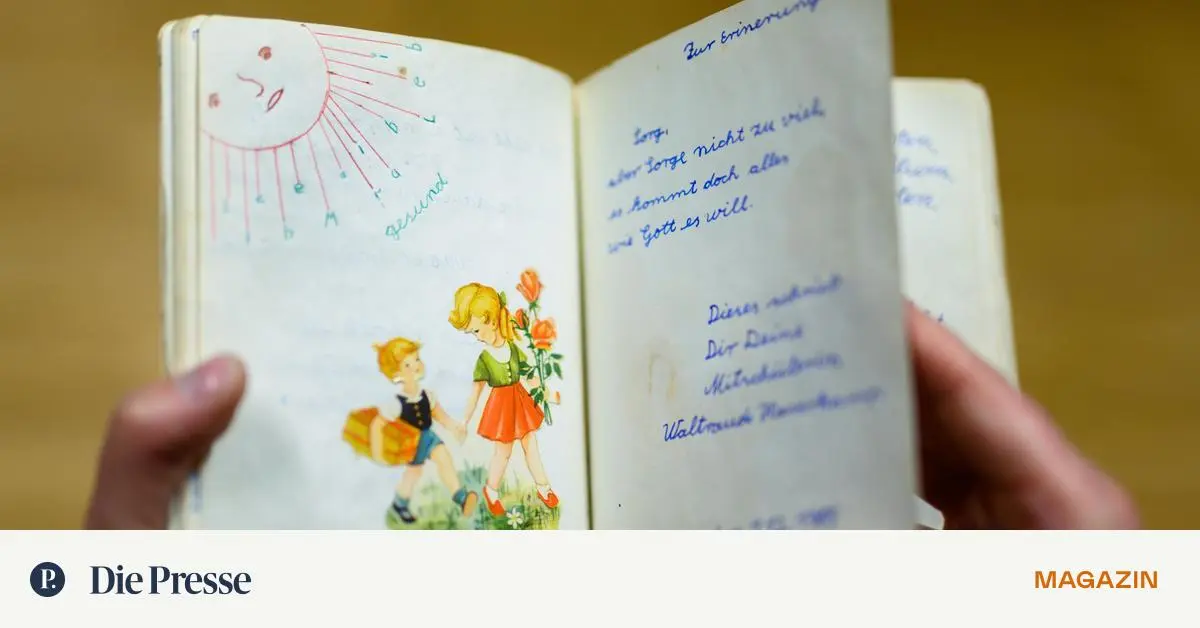 gesund
Zur Erinerung
Sorg,
aber Sorge nicht zu viel,
es kommt doch alles
wie Gott es will.
Dieses schreibt
Dir Deine
Mitschülerin
Waltraud
P.
Die Presse
MAGAZIN